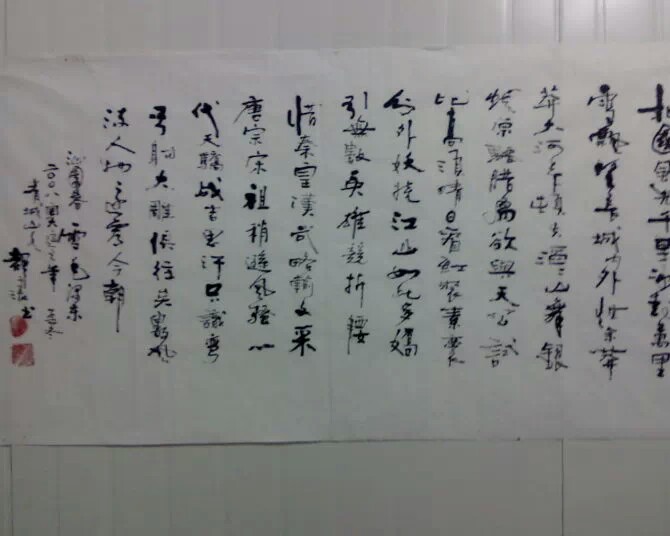 北國風光千里冰封萬里
雪飄望長城內外惟餘莽
莽大河上下頓失滔滔山舞銀
蛇原馳腊象欲與天公試
比高須晴日看紅裝素裹
分外妖嬈江山如此多嬌
引無數英雄競折腰
惜秦皇漢武略輸文采
唐宗宋祖稍遜風騷一
代天驕成吉思汗只識彎
弓射大雕俱往矣數風
流人物還看今朝
沁園春 雪 毛澤東
二〇〇八
青城山人
書